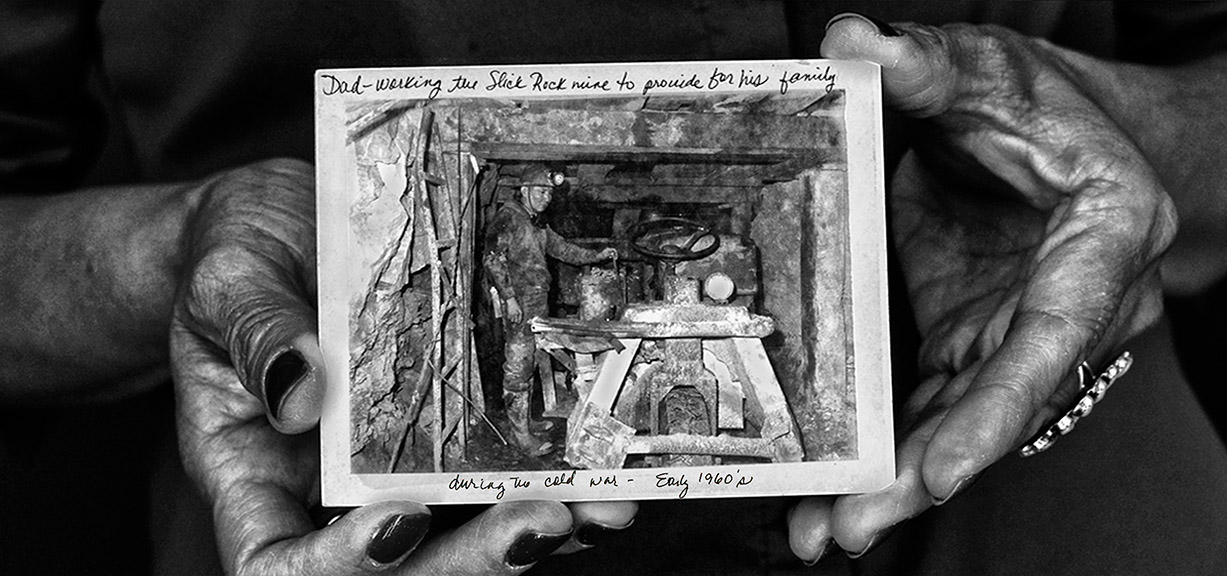 Dad-working the Slick Rock mine to provide for his family
during the cold war - Early 1960's